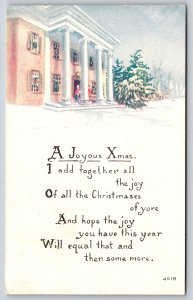 A Joyous Xmas.
I add together all
the joy
Of all the Christmases
of yore
And hope the joy
you have this year
Will equal that and
then some more.
4518